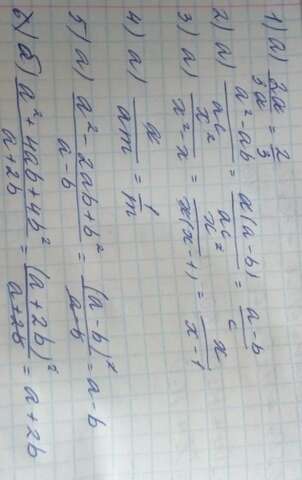 1) а) 2x/3x = 2/3
2) а) a² - ab/ab = a(a-b)/ac = a-b/c
3) а) x²/x² - x = x²/x(x-1) = x/x-1
4) а) a/am = 1/m
5) а) a² - 2ab + b²/a-b = (a-b)²/a-b = a-b
6) б) a² + 4ab + 4b²/a+2b = (a+2b)²/a+2b = a+2b